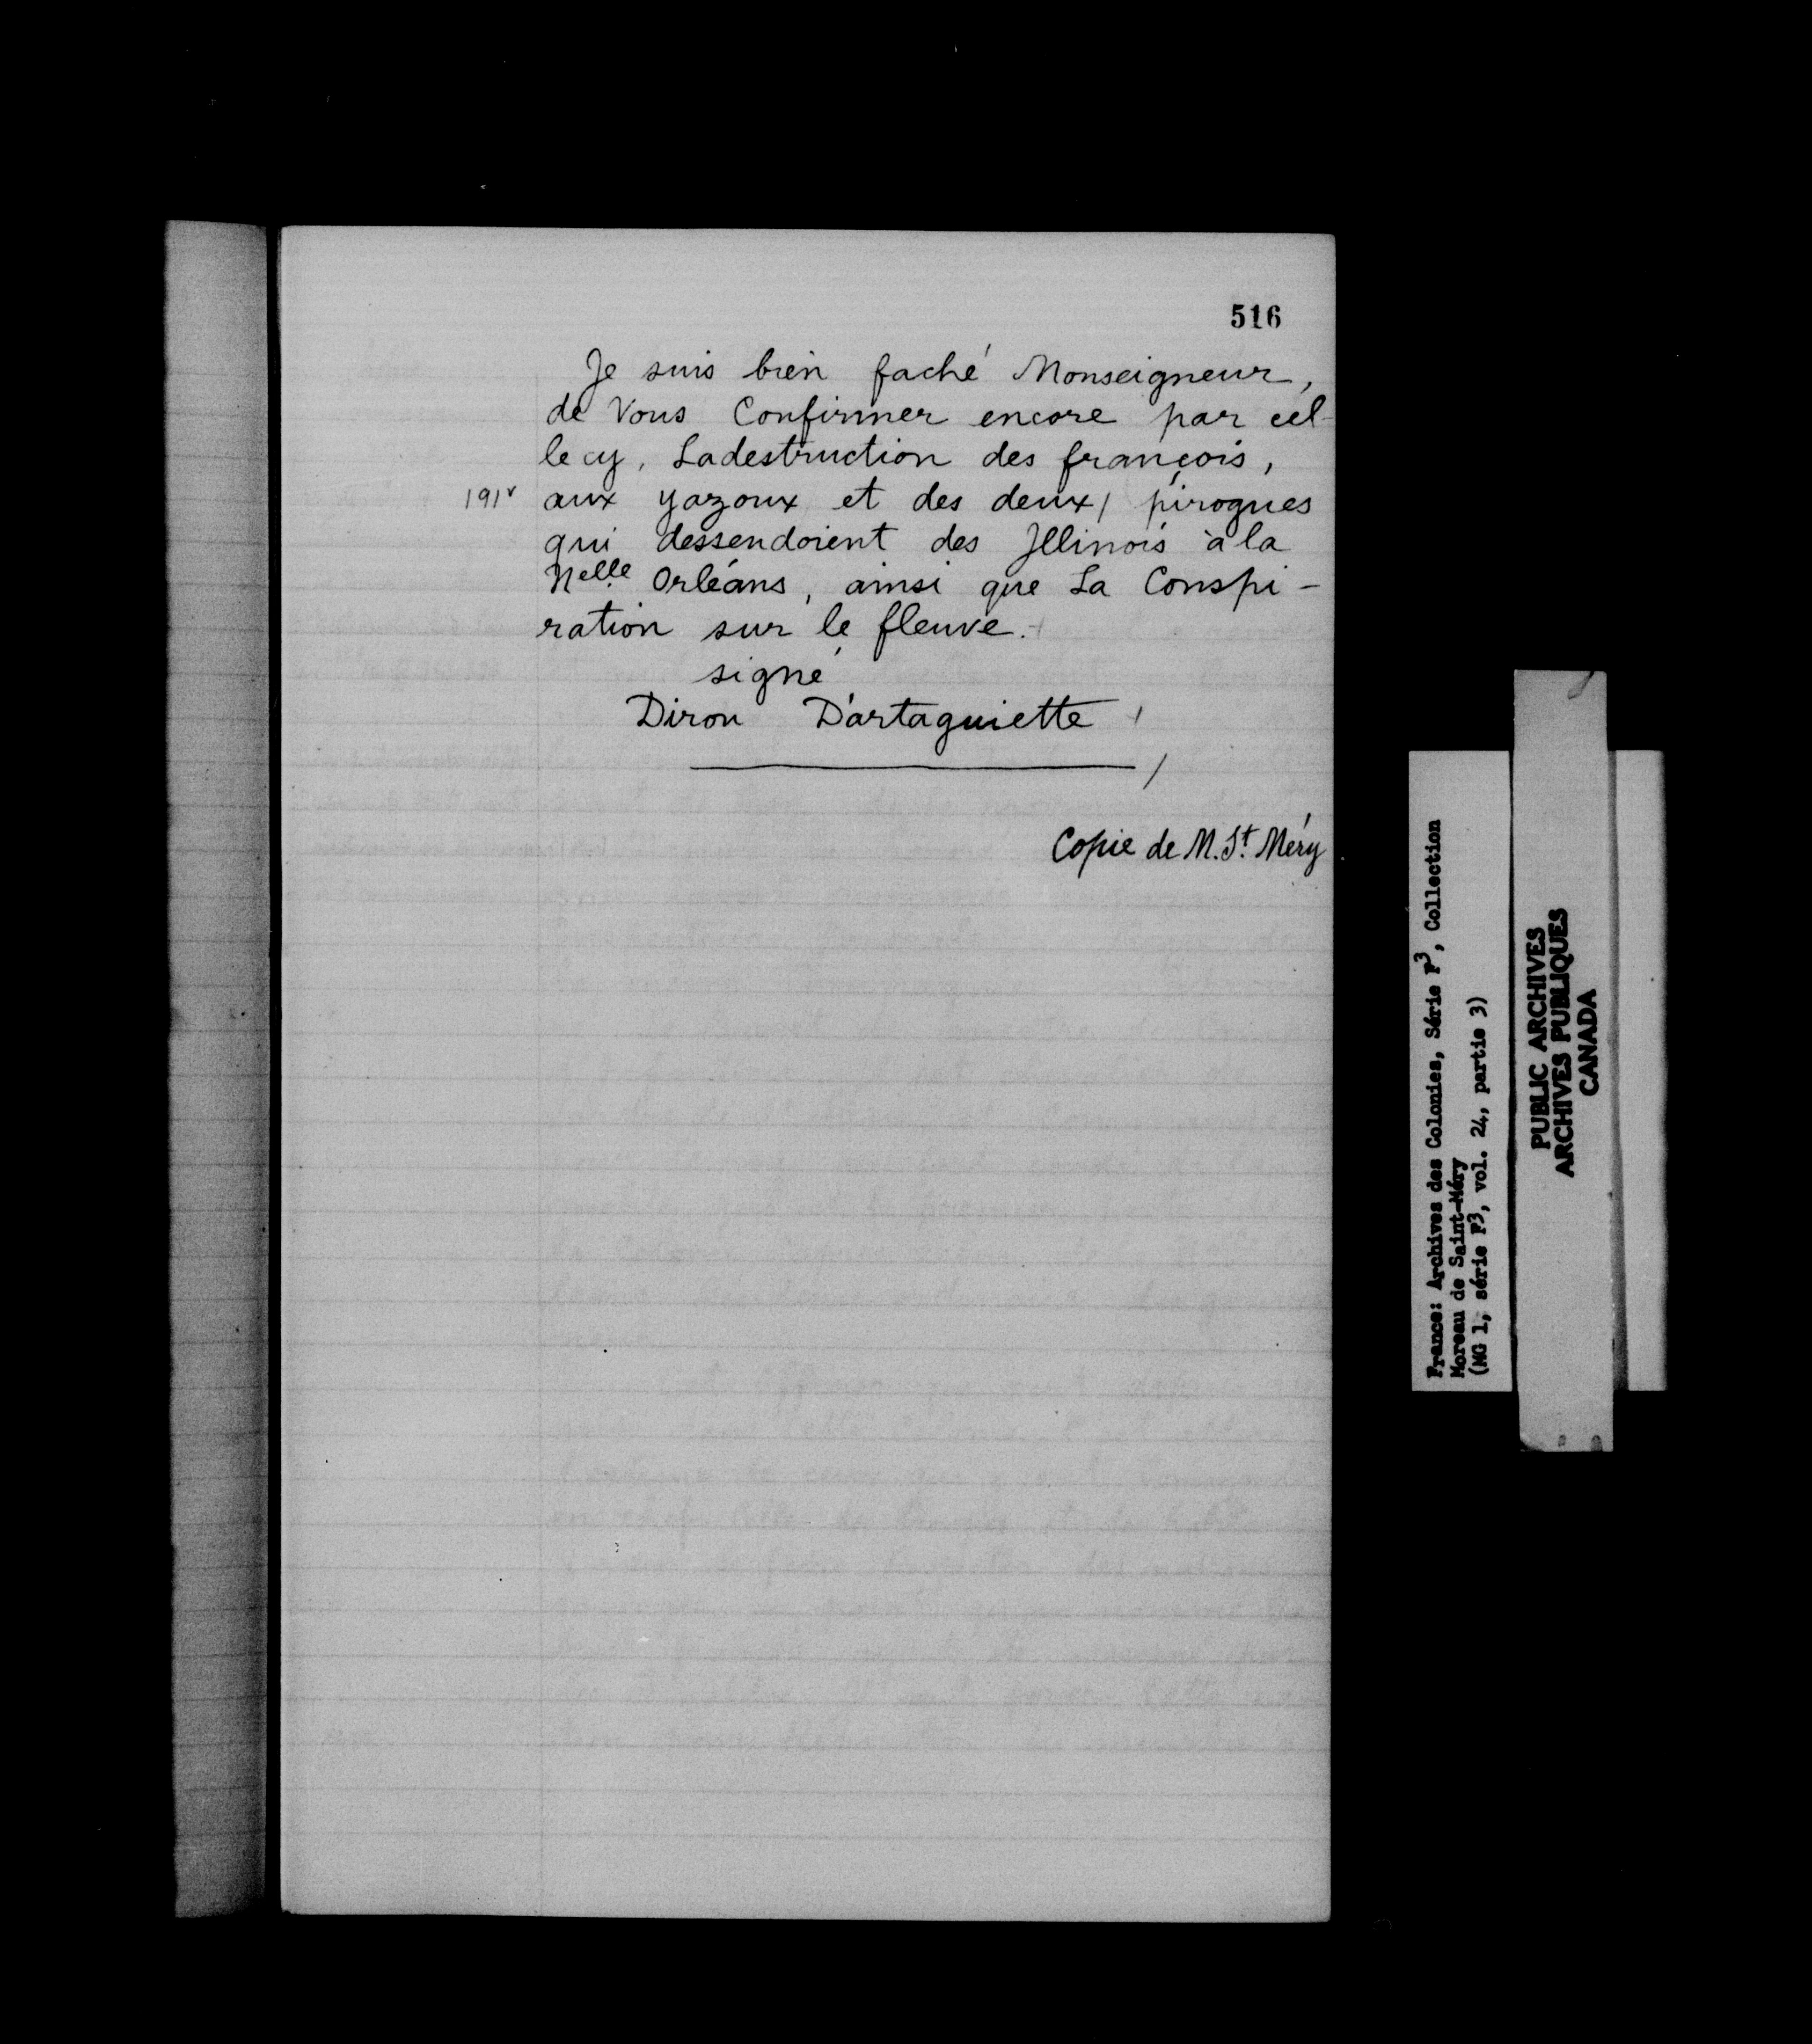 516
Je suis bien faché Monseigneur,
de Vous Confirmer encore par cel-
le cy, Ladestruction des françois,
191v aux yazoux et des deux / pirogues
qui dessendoient des Jllinois à la
Nelle Orléans, ainsi que La Conspi-
ration sur le fleuve.
signé
Diron D'artaguiette
Copie de M. St. Méry
France: Archives des Colonies, Série F3, Collection
Moreau de Saint-Méry
(MG 1, série F3, vol. 24, partie 3)
PUBLIC ARCHIVES
ARCHIVES PUBLIQUES
CANADA